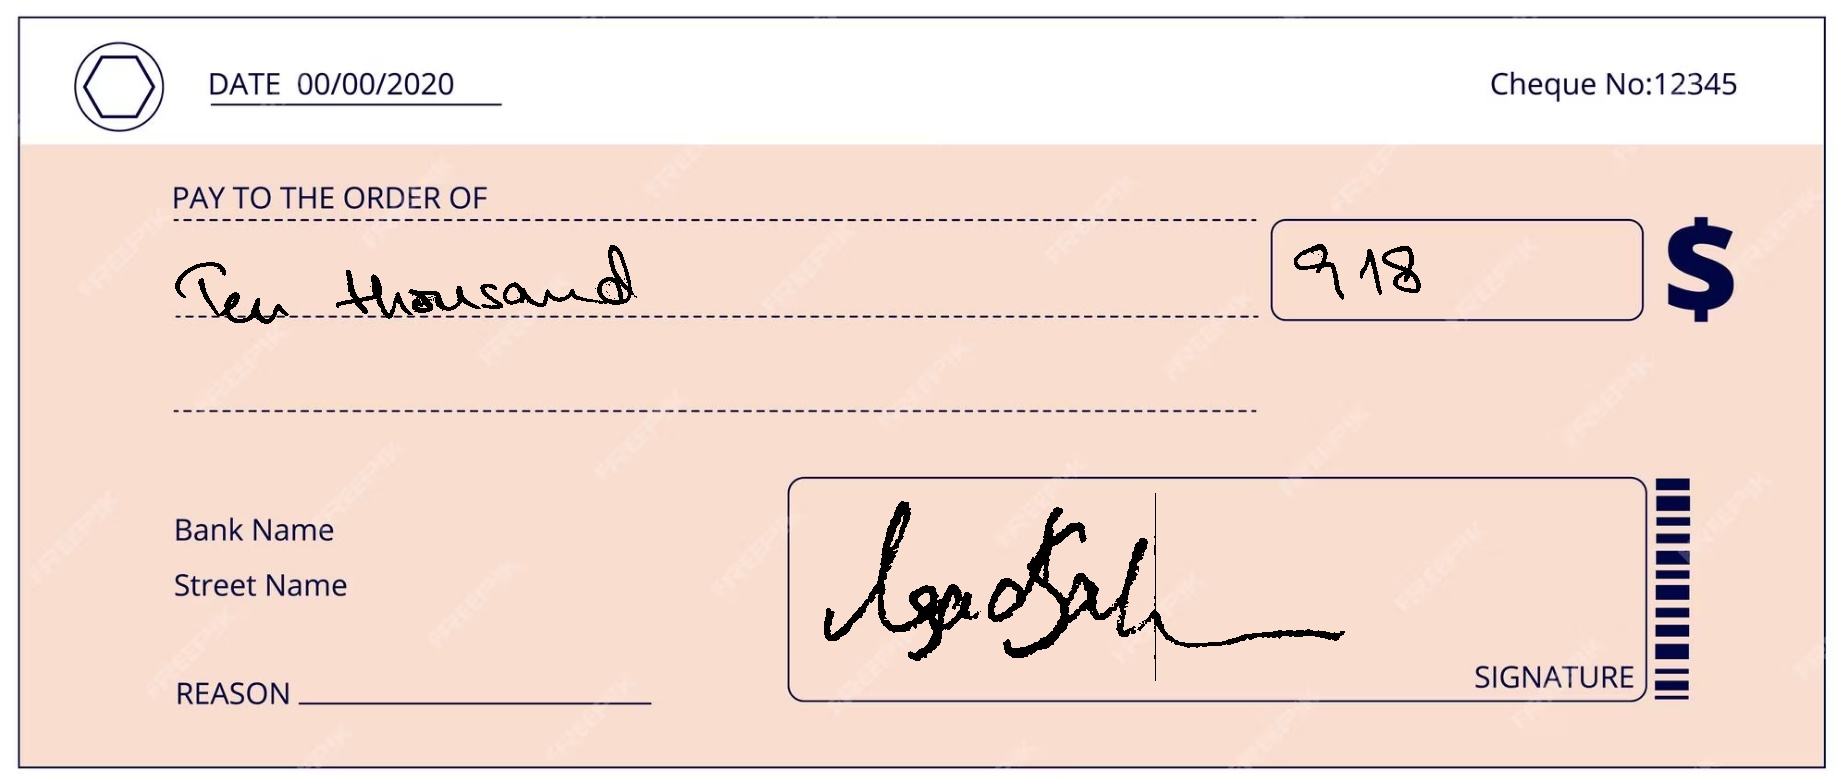 DATE 00/00/2020
Cheque No:12345
PAY TO THE ORDER OF
Ten thousand
918
$
Bank Name
Street Name
REASON
SIGNATURE